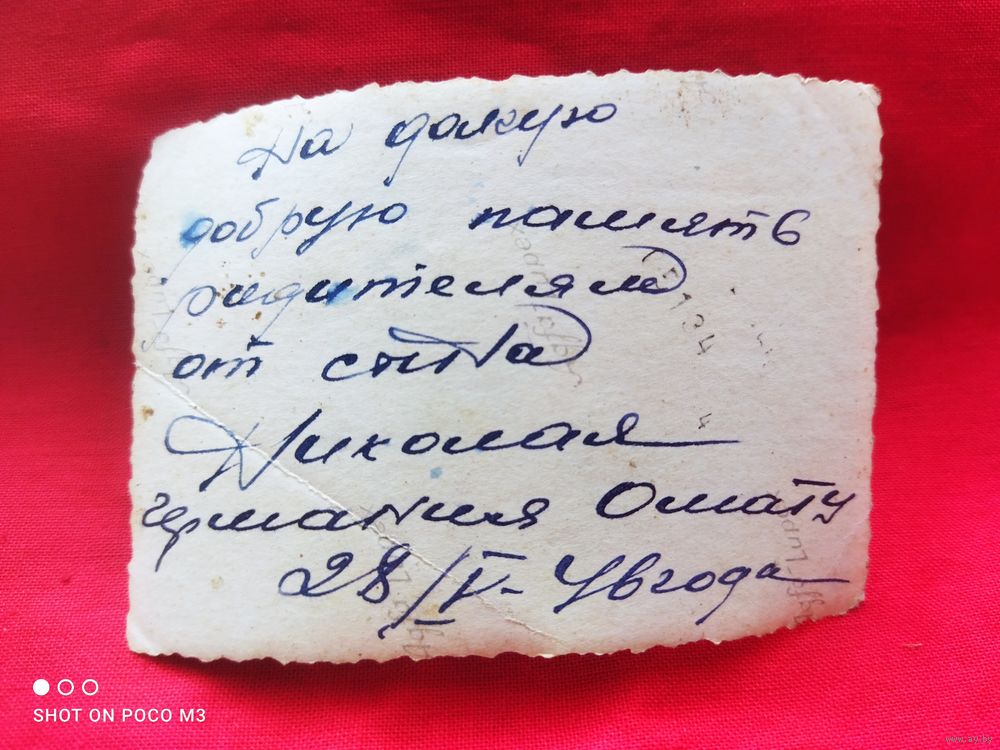 На долгую
добрую память
родителям
от сына
Николая
германия
28/V- 46 года
SHOT ON POCO M3
www.ay.by